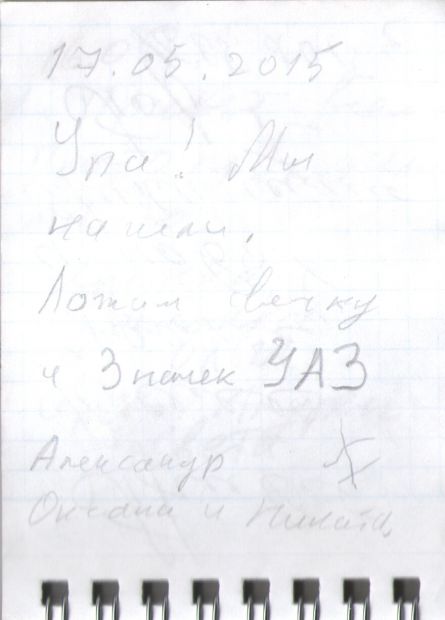 17.05.2015
Ура! Мы
нашли.
Ложим свечку
и Значек УАЗ
Александр
Оксана и Никита